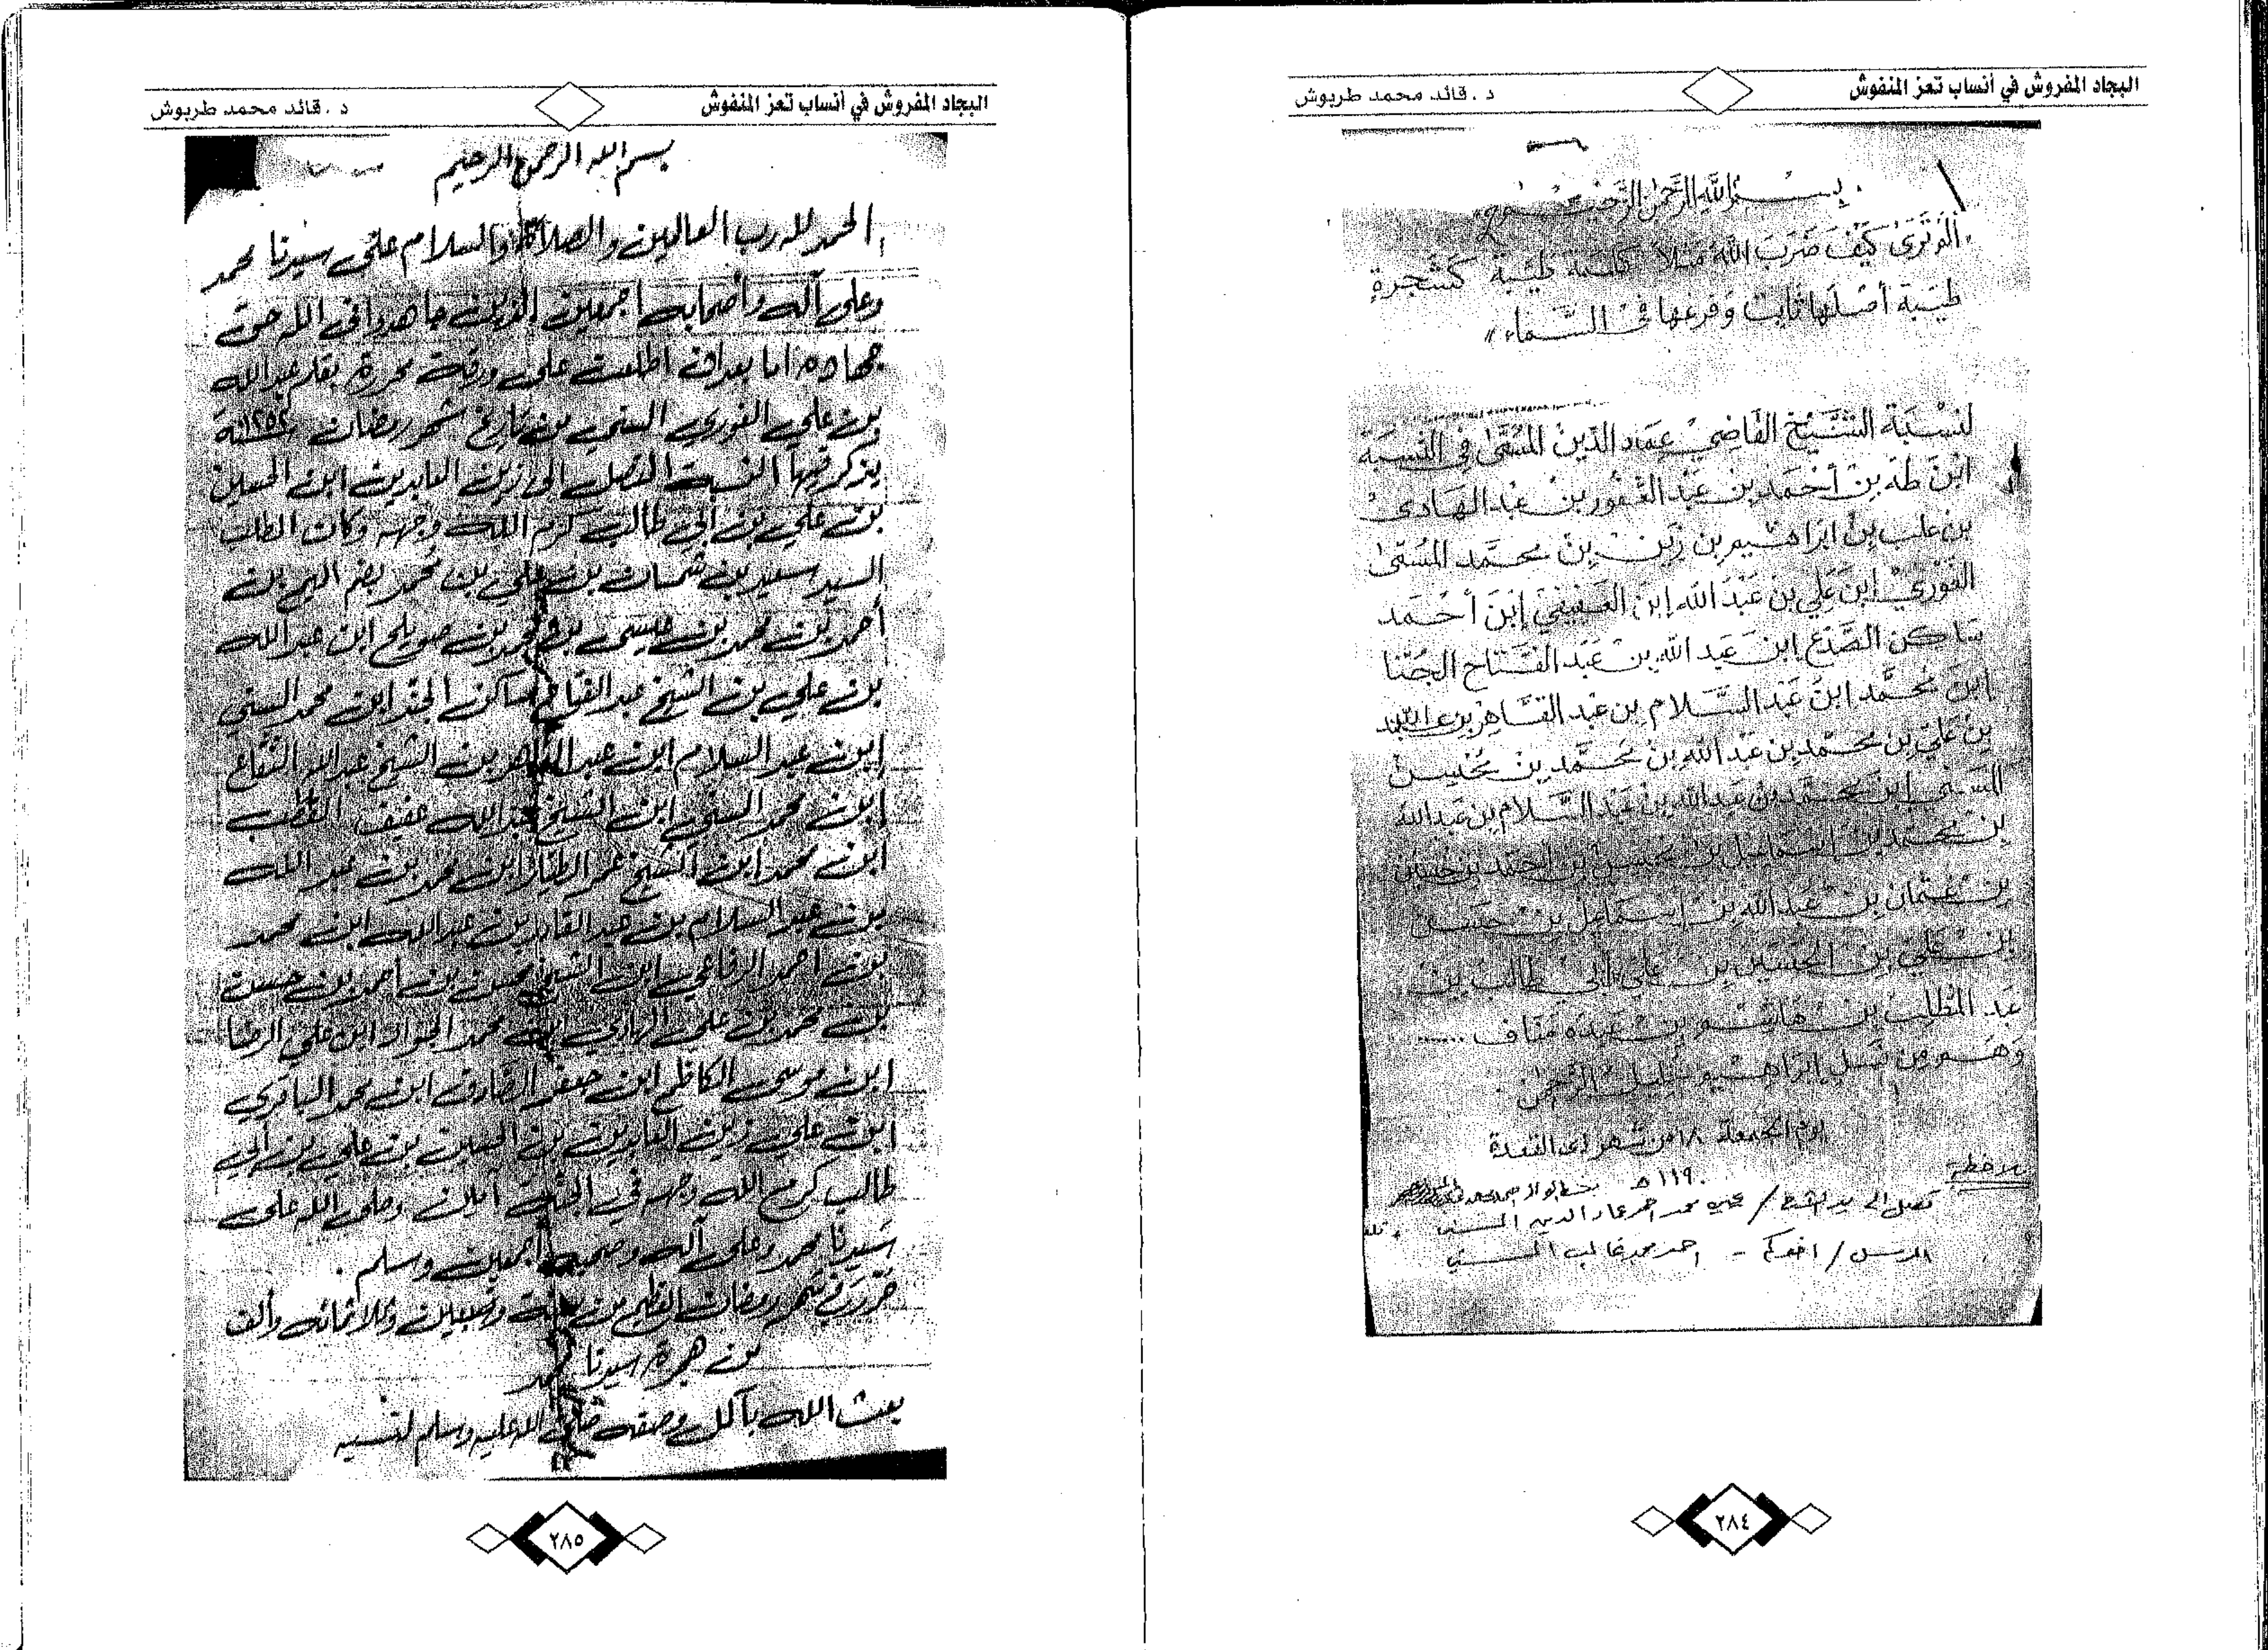 البجاد المفروش في أنساب تعز المنفوش
د. قائد محمد طربوش
بسم الله الرحمن الرحيم
ألم تر كيف ضرب الله مثلا كلمة طيبة كشجرة
طيبة أصلها ثابت وفرعها في السماء))
لنسبة الشيخ القاضي عماد الدين المسمى في النسبة
ابن طه بن أحمد بن عبد الغفور بن عبد الهادي
بن علي بن ابراهيم بن زين بن محمد المسمى
الغوري ابن علي بن عبد الله ابن العفيفي ابن أحمد
ساكن الصدع ابن عبد الله بن عبد الفتاح الجنا
ابن محمد ابن عبد السلام بن عبد القاهر بن
بن علي بن محمد بن عبد الله بن محمد بن محسن
السني ابن محمد بن عبد الله بن عبد السلام بن عبد الله
بن محمد بن اسماعيل بن ابن احمد بن حسين
بن عثمان بن عبد الله بن إسماعيل بن حسن
بن علي بن الحسين بن علي أبي طالب بن
عبد المطلب بن هاشم بن عبده مناف ......
وهم من نسل إبراهيم خليل الرحمن
يوم الجمعة ١٨ من شهر ذي القعدة
١١٩٠ هـ
ملاحظة
تصل الى يد الشيخ / محمد احمر عماد الدين السني
المرسل / اخوكم - احمد محمد غالب السني
٢٨٤
البجاد المفروش في أنساب تعز المنفوش
د. قائد محمد طربوش
بسم الله الرحمن الرحيم
الحمد لله رب العالمين والصلاة والسلام على سيدنا محمد
وعلى آله وأصحابه اجمعين الذين جاهدوا في الله حق
جهاده اما بعد اطلعت على ورقة محررة بقلم عبد الله
بن علي الغوري السني بن تاريخ شهر رمضان سنة ١٢٥٢
يذكر فيها النسبة المتصل الى زين العابدين ابن الحسين
بن علي بن ابي طالب كرم الله وجهه وكان الطلب
السيد سعيد بن شمسان بن علي بن محمد بضم الميم بن
أحمد بن محمد بن عيسى بن محمد بن صويلح ابن عبد الله
بن علي بن الشيخ عبد الفتاح ساكن الجند ابن محمد السني
ابن عبد السلام ابن عبد القاهر بن الشيخ عبد الله
ابن محمد السني ابن الشيخ عبد الله عفيف القطب
ابن محمد ابن الشيخ عمر الطيار ابن محمد بن عبد الله
بن عبد السلام بن عبد القادر بن عبد الله ابن محمد
بن احمد الرفاعي ابن الشيخ حسن بن أحمد بن حسين
بن محمد بن علي الهادي ابن محمد الجواد ابن علي الرضا
ابن موسى الكاظم ابن جعفر الصادق ابن محمد الباقري
ابن علي زين العابدين بن الحسين بن علي بن أبي
طالب كرم الله وجهه في الجنة آمين وصلى الله على
سيدنا محمد وعلى آله وصحبه أجمعين وسلم .
حرر في شهر رمضان العظيم من سنة وتسعين وثلاثمائه وألف
من هجرة سيدنا محمد
بعث الله بأكمل وصفه صلى الله عليه وسلم
٢٨٥